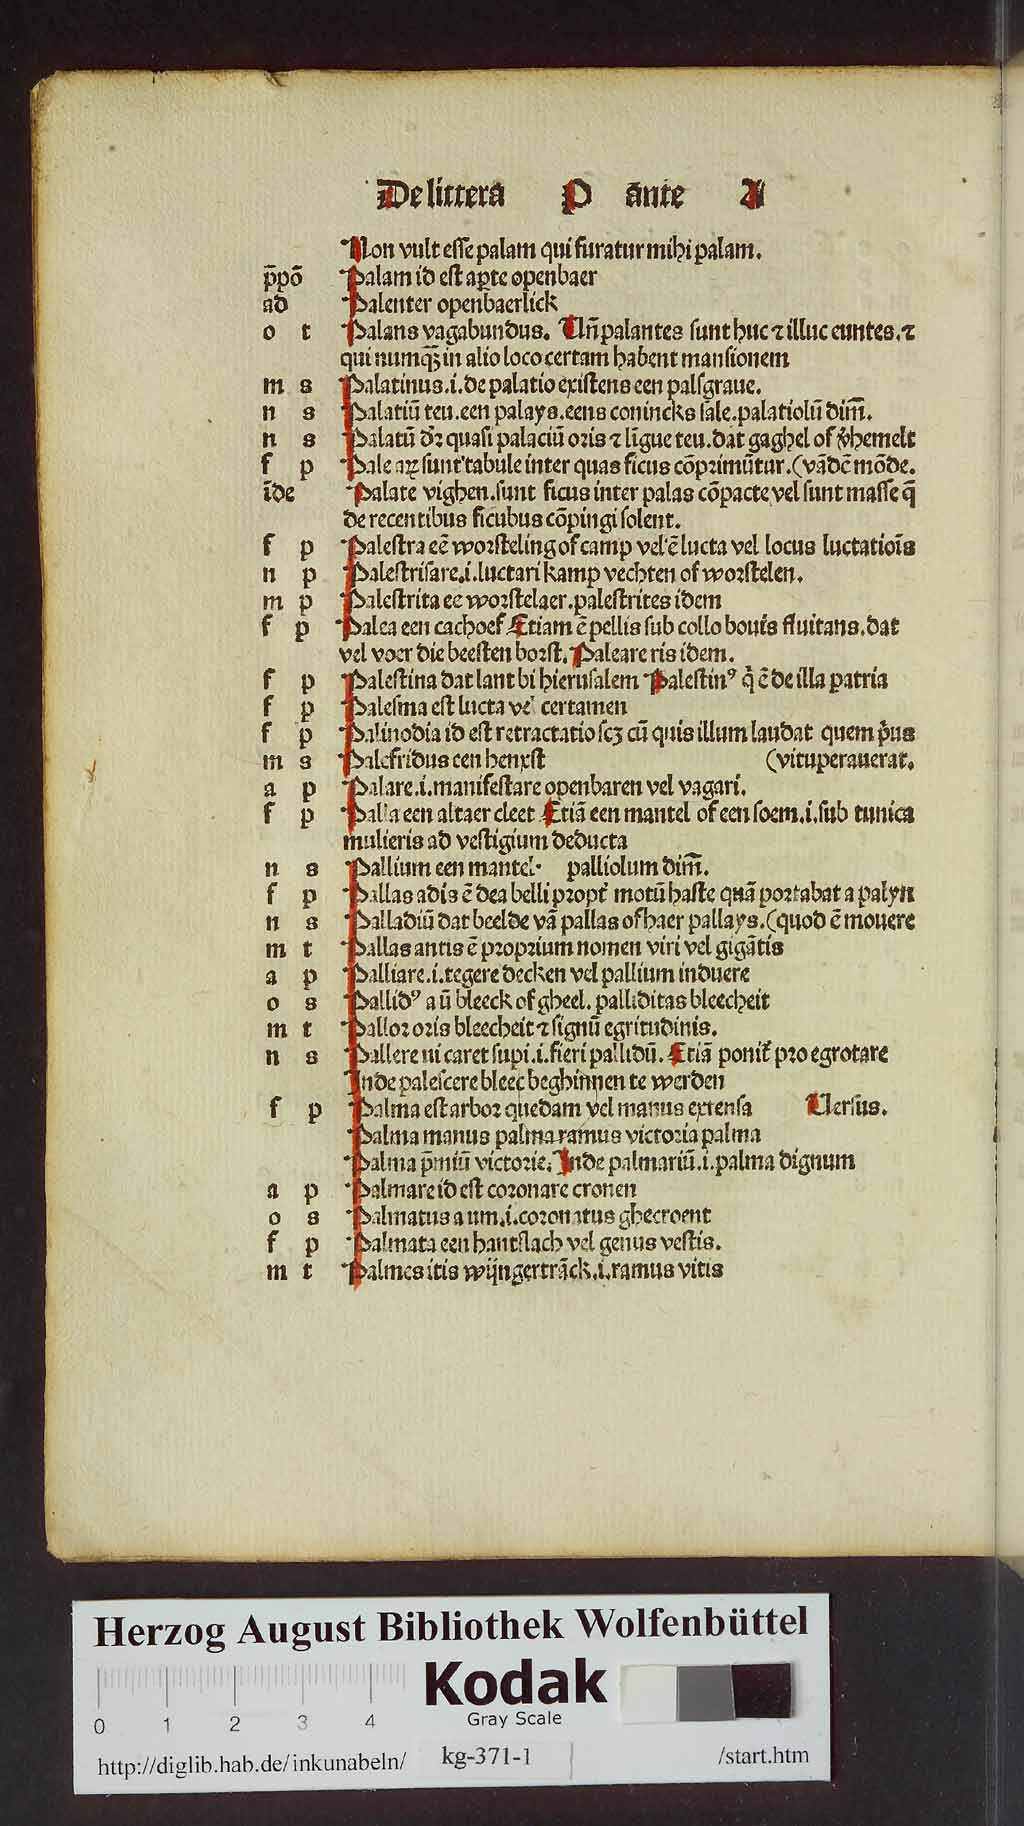 De littera P ante A
Non vult esse palam qui furatur mihi palam.
p̄põ Palam id est aꝑte openbaer
ad Palenter openbaerlick
o t Palans vagabundus. Un̄ palantes sunt huc ⁊ illuc euntes. ⁊
qui numqȝ in alio loco certam habent mansionem
m s Palatinus .i. de palatio existens een palsgraue.
n s Palatiū teu. een palays. eens conincks sale. palatiolū dim̄.
n s Palatū dr̄ quasi palaciū oris ⁊ lingue teu. dat gaghel of v̓hemelt
f p Pale aꝝ sunt tabule inter quas ficus cōprimūtur. (vādē mōde.
īde Palate vighen. sunt ficus inter palas cōpacte vel sunt masse q̄
de recentibus ficubus cōpingi solent.
f p Palestra eē worsteling of camp vel ē lucta vel locus luctatiois
n p Palestrisare .i. luctari kamp vechten of worstelen.
m p Palestrita ee worstelaer. palestrites idem
f p Palea een cachoef Etiam ē pellis sub collo bouis fluitans. dat
vel voer die beesten borst. Paleare ris idem.
f p Palestina dat lant bi hierusalem Palestinꝰ q̄ ē de illa patria
f p Palesma est lucta vel certamen
f p Palinodia id est retractatio scȝ cū quis illum laudat quem p̓us
m s Palefridus een henxst (vituperauerat.
a p Palare .i. manifestare openbaren vel vagari.
f p Palla een altaer cleet Etiā een mantel of een soem .i. sub tunica
mulieris ad vestigium deducta
n s Pallium een mantel· palliolum dim̄.
f p Pallas adis ē dea belli propt̓ motū haste quā portabat a palyn
n s Palladiū dat beelde vā pallas of haer pallays. (quod ē mouere
m t Pallas antis ē proprium nomen viri vel gigātis
a p Palliare .i. tegere decken vel pallium induere
o s Pallidꝰ a ū bleeck of gheel. palliditas bleecheit
m t Pallor oris bleecheit ⁊ signū egritudinis.
n s Pallere ui caret supi .i. fieri pallidū. Etiā ponit̓ pro egrotare
Inde palescere bleec beghinnen te werden
f p Palma est arbor quedam vel manus extensa Uersus.
Palma manus palma ramus victoria palma
Palma p̄miū victorie. Inde palmariū .i. palma dignum
a p Palmare id est coronare cronen
o s Palmatus a um .i. coronatus ghecroent
f p Palmata een hantslach vel genus vestis.
m t Palmes itis wijngertrāck .i. ramus vitis
Herzog August Bibliothek Wolfenbüttel
Kodak
Gray Scale
0 1 2 3 4
http://diglib.hab.de/inkunabeln/ kg-371-1 /start.htm